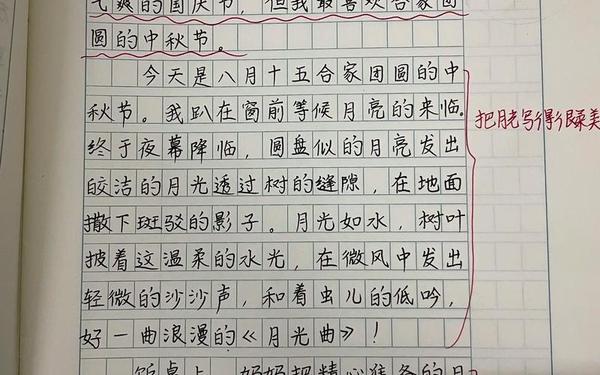 气爽的国庆节，但我最喜欢合家团
圆的中秋节。
今天是八月十五合家团圆的中
秋节。我趴在窗前等候月亮的来临.
终于夜幕降临，圆盘似的月亮发出
皎洁的月光透过树的缝隙，在地面
撒下斑驳的影子。月光如水，树叶
披着这温柔的水光，在微风中发出
轻微的沙沙声，和着虫儿的低吟，
好一曲浪漫的《月光曲》！
饭桌上，妈妈把精心准备的月
把月亮写得很柔美